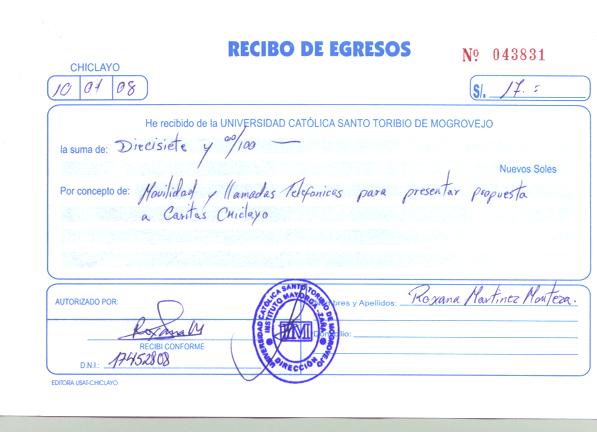 RECIBO DE EGRESOS
Nº 043831
CHICLAYO
10 01 08
S/. 17. =
He recibido de la UNIVERSIDAD CATÓLICA SANTO TORIBIO DE MOGROVEJO
la suma de: Diecisiete y 00/100 —
Nuevos Soles
Por concepto de: Movilidad y llamadas Telefonicas para presentar propuesta
a Caritas Chiclayo
AUTORIZADO POR:
bres y Apellidos: Roxana Martinez Monteza.
RECIBI CONFORME
D.N.I.: 17452808
UNIVERSIDAD CATÓLICA SANTO TORIBIO DE MOGROVEJO
INSTITUTO
DIRECCIÓN
EDITORA USAT-CHICLAYO